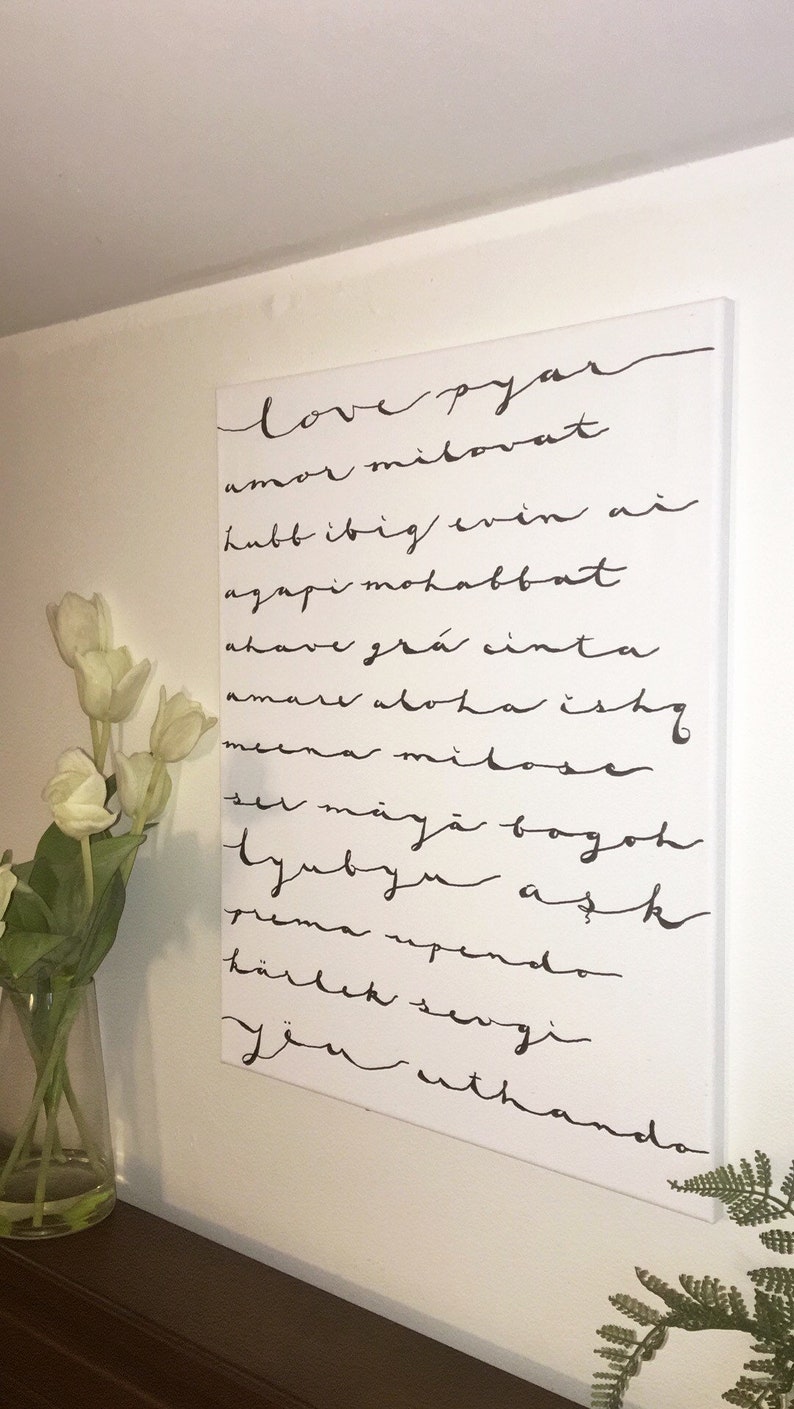 love pyar
amor milovat
hubb ibig evin ai
agapi mohabbat
ahave grá cinta
amare aloha ishq
meena milose
ser māyā bogoh
lyubyu aşk
prema upendo
kärlek sevgi
yëu uthando